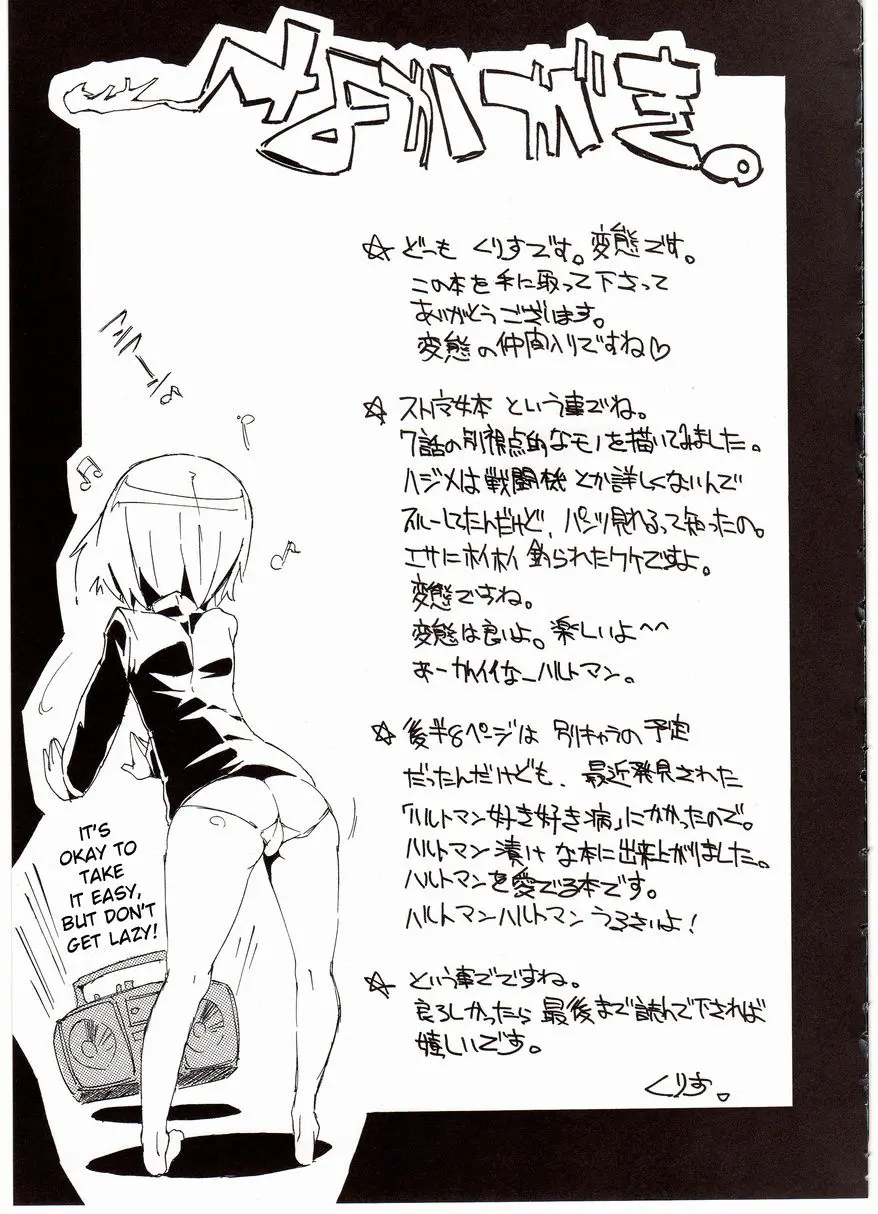 なかがき。
☆ どーも くりすです。変態です。
この本を手に取って下さって
ありがとうございます。
変態の仲間入りですね♡
☆ ストパン本 という事でね。
7話の別視点的なモノを描いてみました。
ハジメは戦闘機とか詳しくないんで
スルーしてたんだけど、パンツ見れるって知ったの。
エサにホイホイ釣られたワケですよ。
変態ですね。
変態は良いよ。楽しいよ~~
あーかわイイなーハルトマン。
☆ 後半8ページは 別キャラの予定
だったんだけども、最近発見された
「ハルトマン好き好き病」にかかったので。
ハルトマン漬けな本に出来上がりました。
ハルトマンを愛でる本です。
ハルトマンハルトマンうるさいよ!
☆ という事でですね。
良ろしかったら最後まで読んで下されば
嬉しいです。
くりす。
IT'S
OKAY TO
TAKE
IT EASY,
BUT DON'T
GET LAZY!